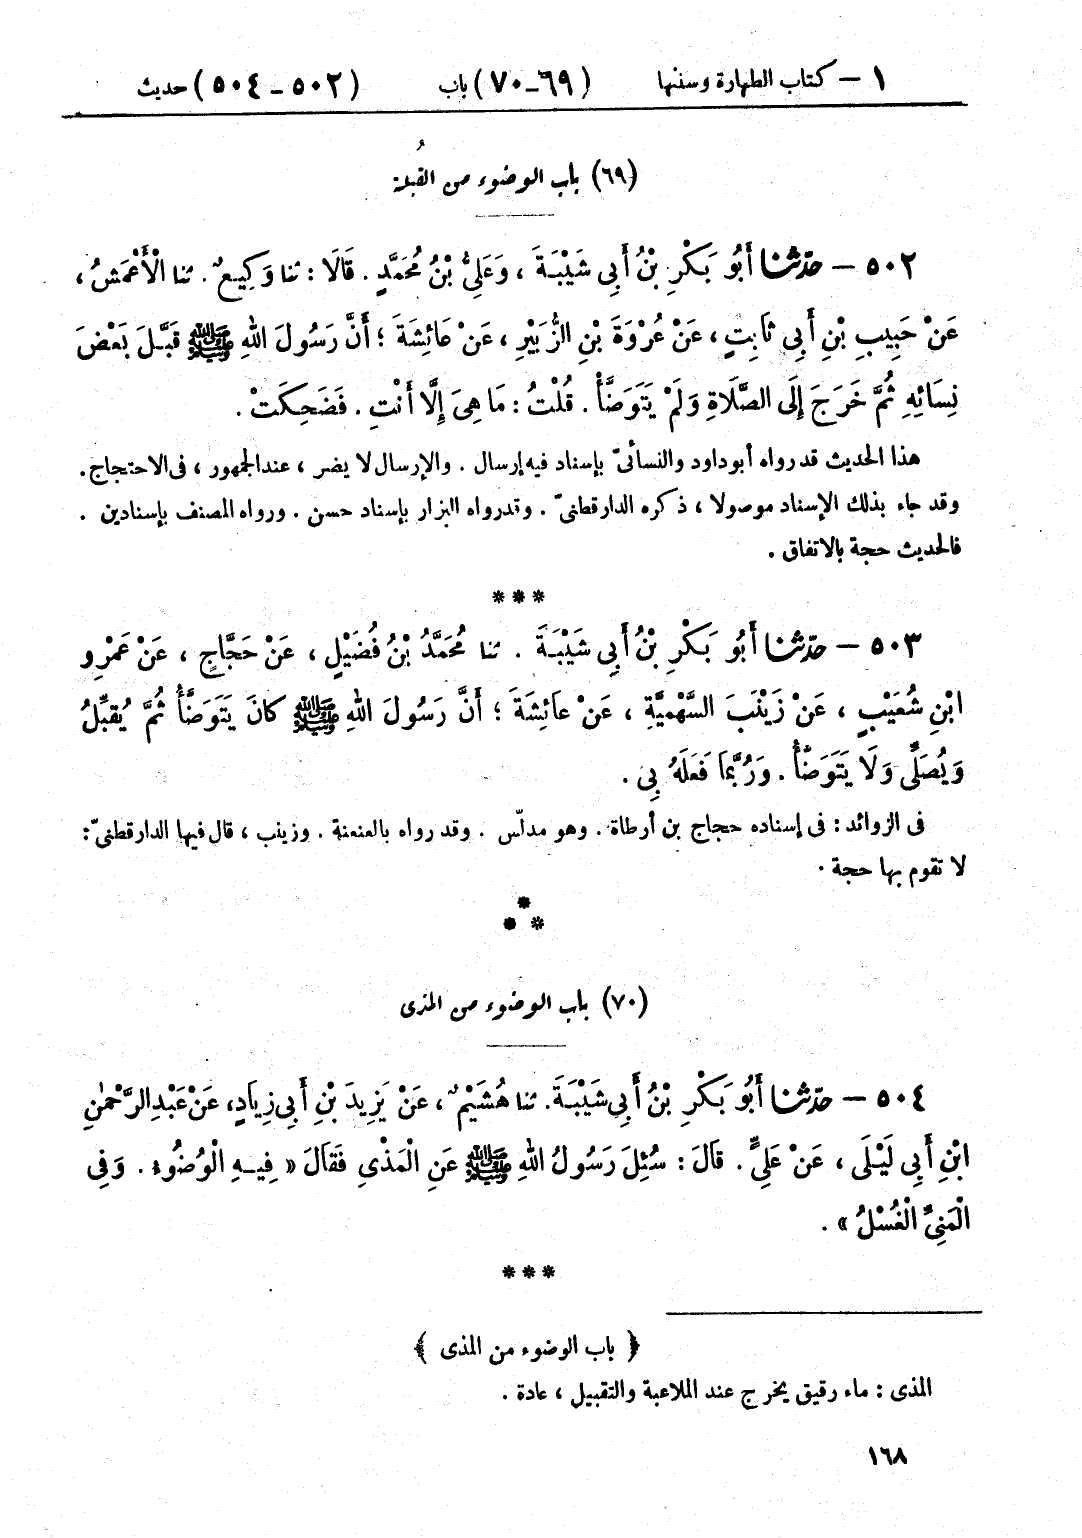 ١ – كتاب الطهارة وسننها (٦٩-٧٠) باب (٥٠٢ - ٥٠٤) حديث
(٦٩) باب الوضوء من القُبلة
٥٠٢ – حدّثنا أَبُو بَكْرِ بْنُ أَبِي شَيْبَةَ ، وَعَلِيُّ بْنُ مُحَمَّدٍ . قَالَا : ثنا وَكِيعٌ . ثنا الْأَعْمَشُ ،
عَنْ حَبِيبِ بْنِ أَبِي ثَابِتٍ ، عَنْ عُرْوَةَ بْنِ الزُّبَيْرِ ، عَنْ عَائِشَةَ ؛ أَنَّ رَسُولَ اللهِ ﷺ قَبَّلَ بَعْضَ
نِسَائِهِ ثُمَّ خَرَجَ إِلَى الصَّلَاةِ وَلَمْ يَتَوَضَّأْ . قُلْتُ : مَا هِيَ إِلَّا أَنْتِ . فَضَحِكَتْ .
هذا الحديث قد رواه أبو داود والنسائىّ بإسناد فيه إرسال . والإرسال لا يضر ، عند الجمهور ، فى الاحتجاج .
وقد جاء بذلك الإسناد موصولا ، ذكره الدارقطنىّ . وقد رواه البزار بإسناد حسن . ورواه المصنف بإسنادين .
فالحديث حجة بالاتفاق .
***
٥٠٣ – حدّثنا أَبُو بَكْرِ بْنُ أَبِي شَيْبَةَ . ثنا مُحَمَّدُ بْنُ فُضَيْلٍ ، عَنْ حَجَّاجٍ ، عَنْ عَمْرِو
ابْنِ شُعَيْبٍ ، عَنْ زَيْنَبَ السَّهْمِيَّةِ ، عَنْ عَائِشَةَ ؛ أَنَّ رَسُولَ اللهِ ﷺ كَانَ يَتَوَضَّأُ ثُمَّ يُقَبِّلُ
وَيُصَلِّى وَلَا يَتَوَضَّأُ . وَرُبَّمَا فَعَلَهُ بِى .
فى الزوائد : فى إسناده حجاج بن أرطاة . وهو مدلّس . وقد رواه بالعنعنة . وزينب ، قال فيها الدارقطنىّ :
لا تقوم بها حجة .
*
* *
(٧٠) باب الوضوء من المذى
٥٠٤ – حدّثنا أَبُو بَكْرِ بْنُ أَبِي شَيْبَةَ . ثنا هُشَيْمٌ ، عَنْ يَزِيدَ بْنِ أَبِي زِيَادٍ ، عَنْ عَبْدِ الرَّحْمٰنِ
ابْنِ أَبِي لَيْلَى ، عَنْ عَلِيٍّ . قَالَ : سُئِلَ رَسُولُ اللهِ ﷺ عَنِ الْمَذْىِ فَقَالَ « فِيهِ الْوُضُوءُ . وَفِى
الْمَنِىِّ الْغُسْلُ » .
***
﴿ باب الوضوء من المذى ﴾
المذى : ماء رقيق يخرج عند الملاعبة والتقبيل ، عادة .
١٦٨